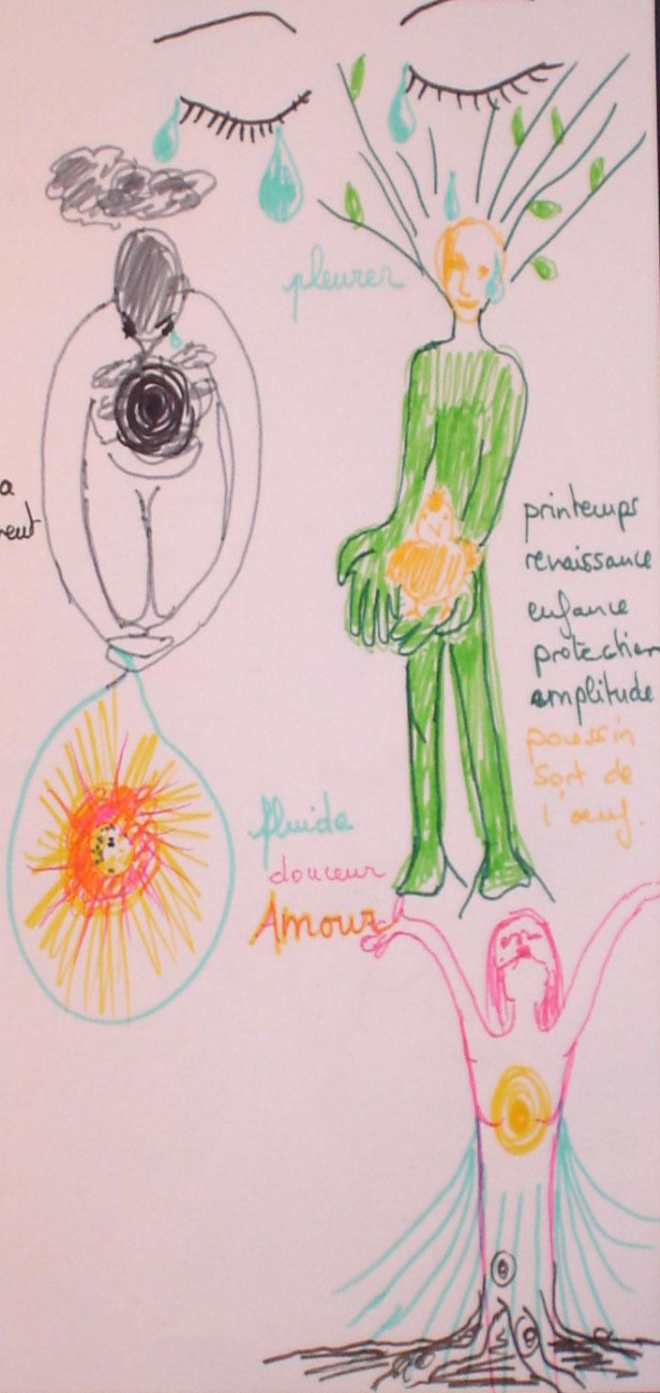 pleurer
a
printemps
renaissance
enfance
protection
amplitude
poussin
sort de
l'œuf.
fluide
douceur
Amour